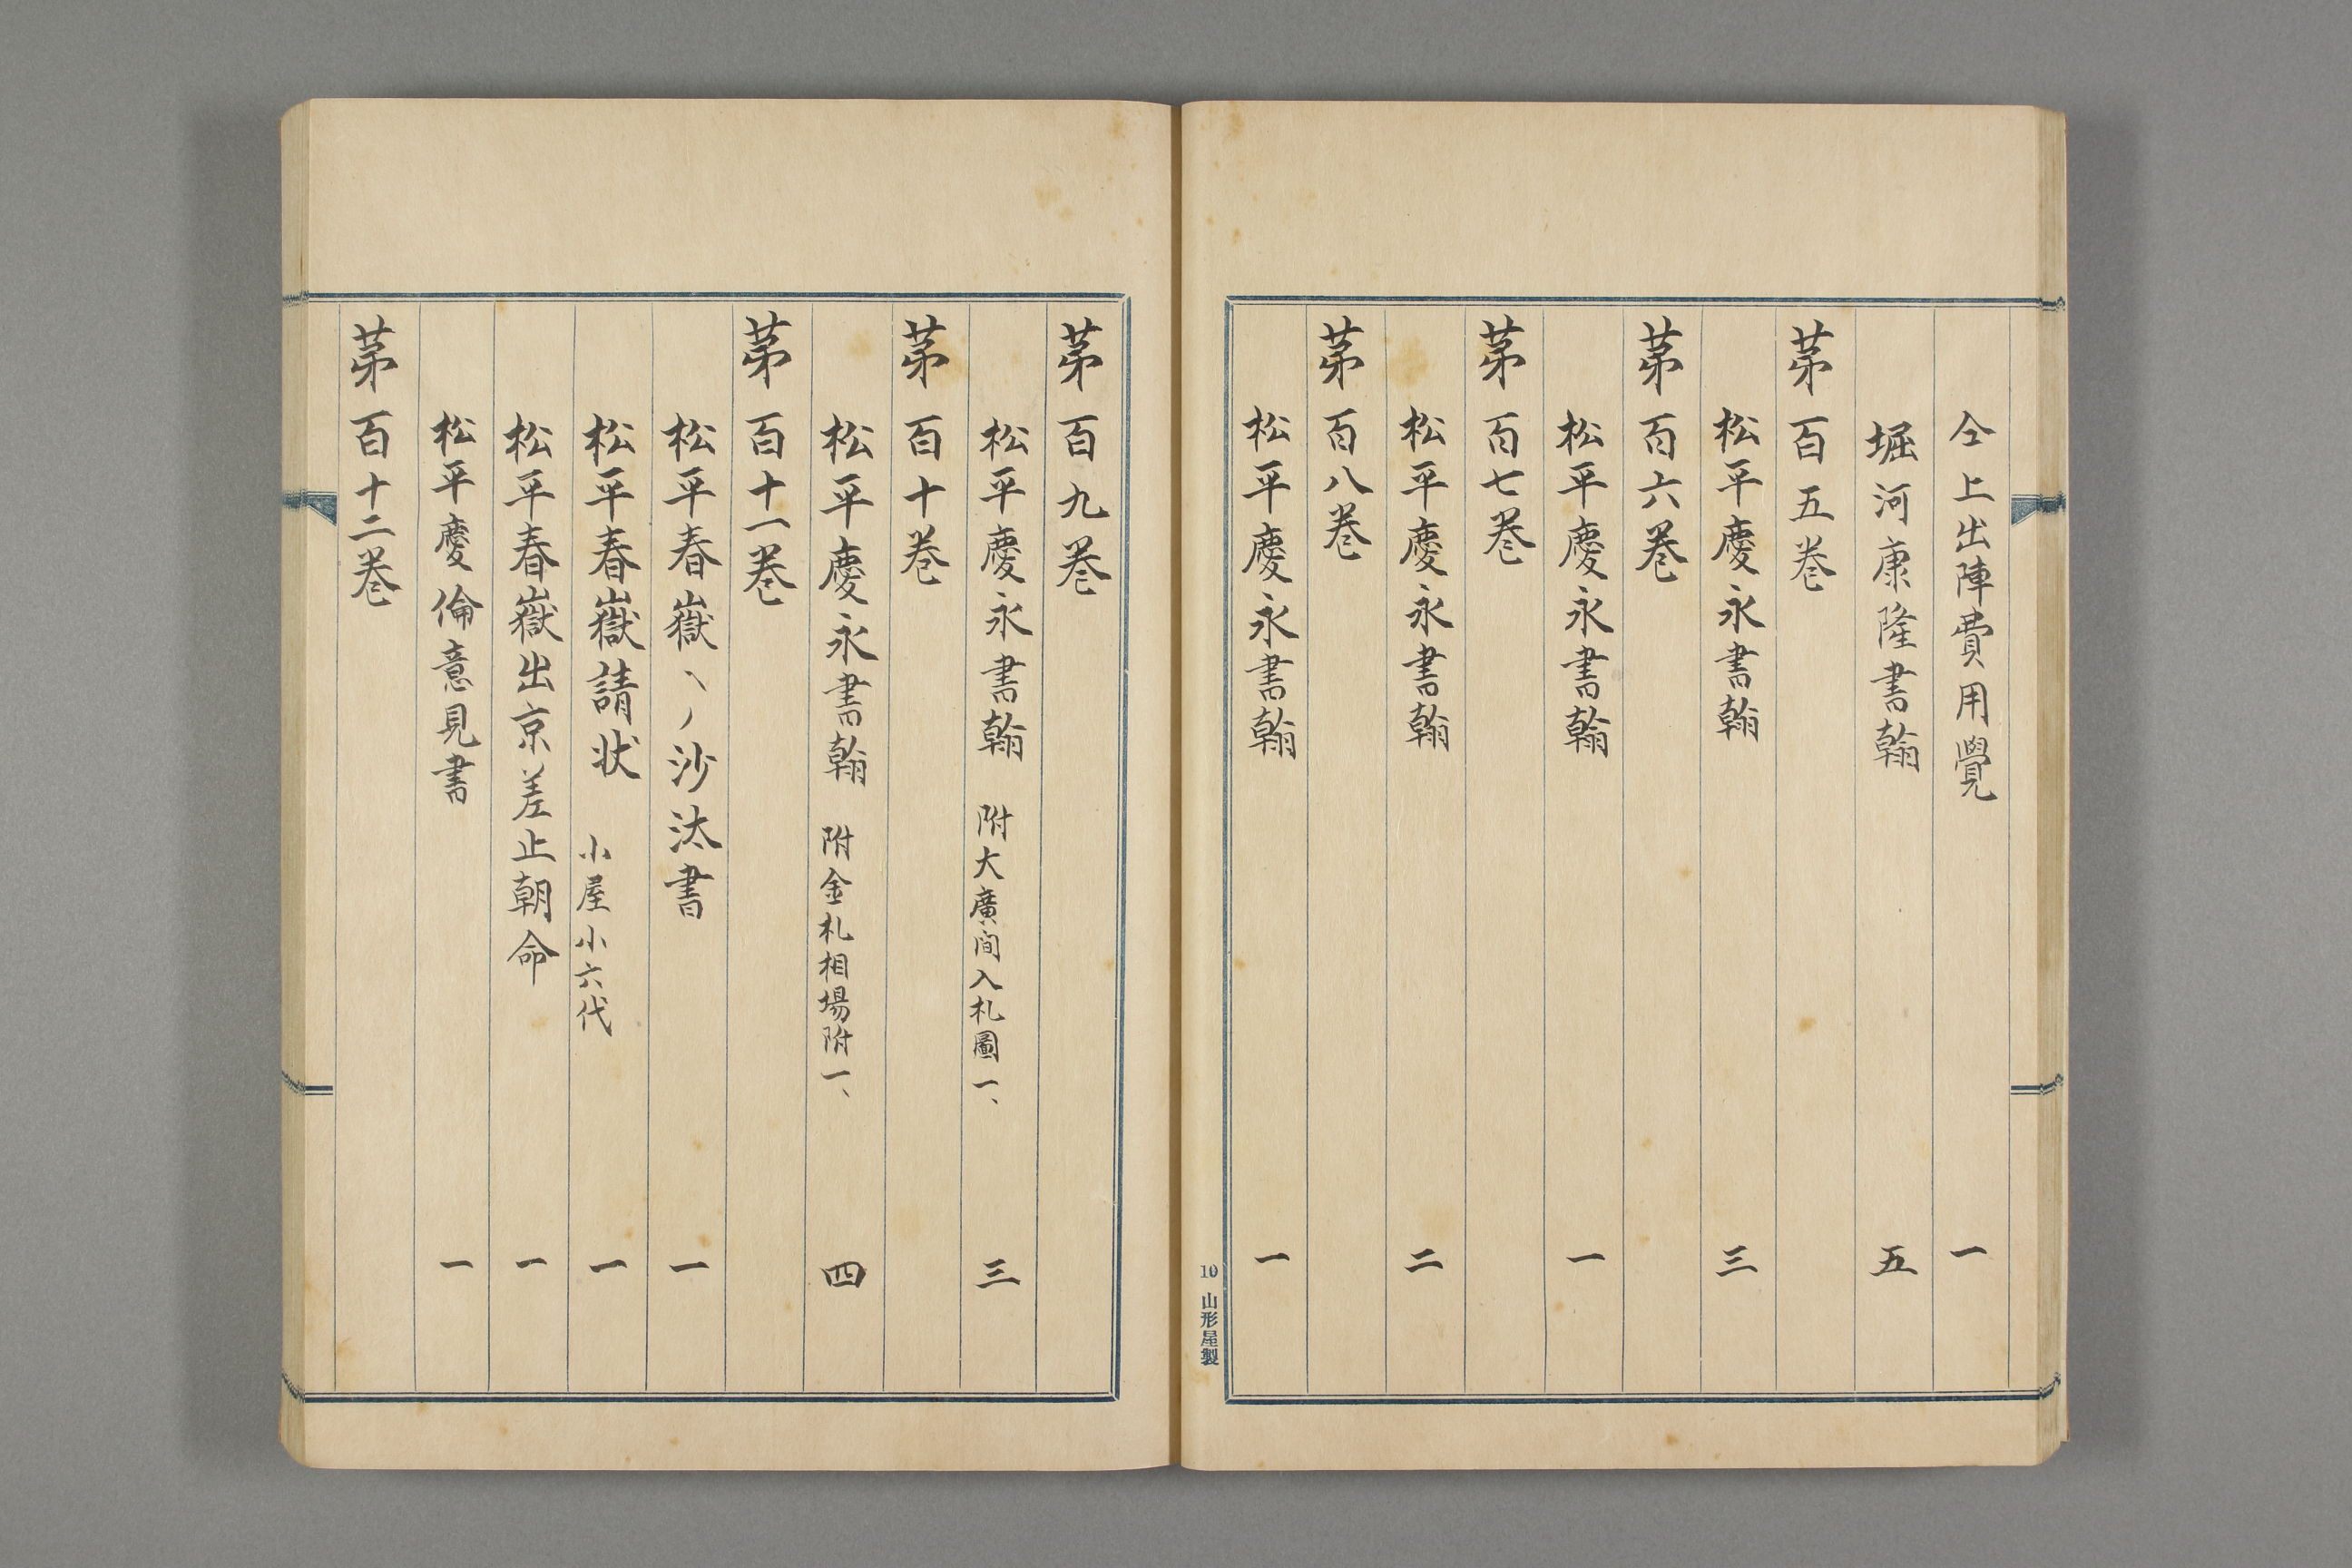 仝上出陣費用覺 一
堀河康隆書翰 五
茅百五巻
松平慶永書翰 三
茅百六巻
松平慶永書翰 一
茅百七巻
松平慶永書翰 二
茅百八巻
松平慶永書翰 一
10 山形屋製
茅百九巻
松平慶永書翰 附大廣間入札圖一、 三
茅百十巻
松平慶永書翰 附金札相場附一、 四
茅百十一巻
松平春嶽ヽノ沙汰書 一
松平春嶽請状 小屋小六代 一
松平春嶽出京差止朝命 一
松平慶倫意見書 一
茅百十二巻